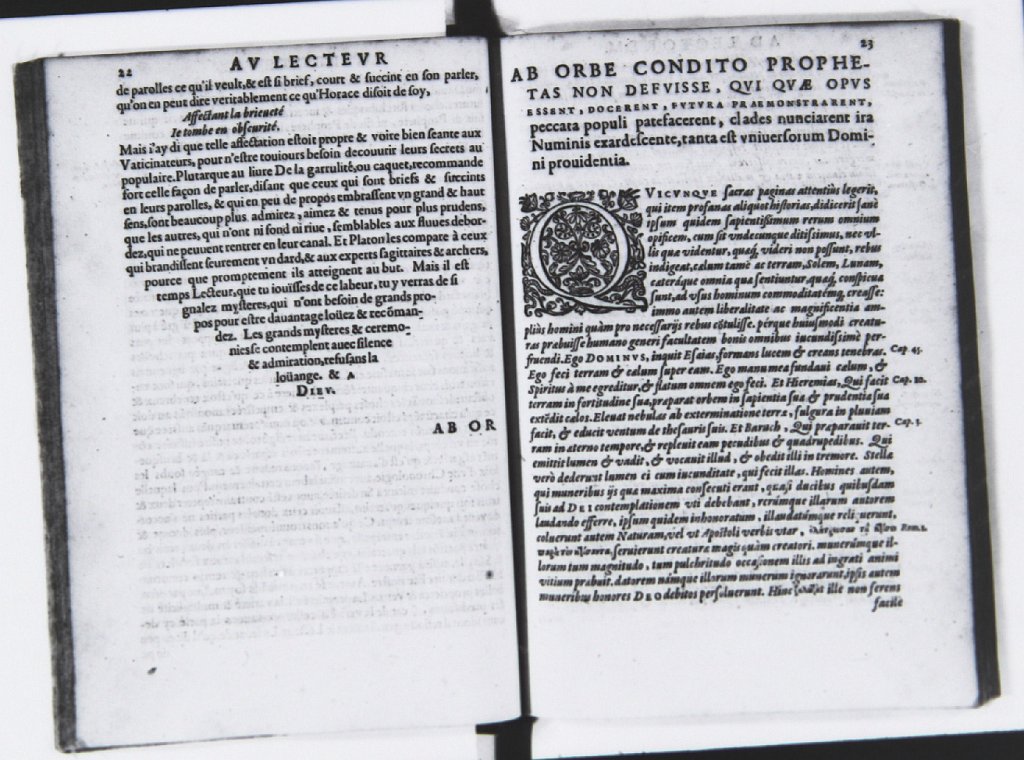 22
AV LECTEVR
de parolles ce qu'il veult, & est si brief, court & succint en son parler,
qu'on en peut dire veritablement ce qu'Horace disoit de soy,
Affectant la brieueté
Ie tombe en obscurité.
Mais i'ay di que telle affectation estoit propre & voire bien seante aux
Vaticinateurs, pour n'estre touiours besoin decouurir leurs secrets au
populaire. Plutarque au liure De la garrulité, ou caquet, recommande
fort celle façon de parler, disant que ceux qui sont briefs & succints
en leurs parolles, & qui en peu de propos embrassent vn grand & haut
sens, sont beaucoup plus admirez, aimez & tenus pour plus prudens,
que les autres, qui n'ont ni fond ni riue, semblables aux fluues debor-
dez, qui ne peuuent rentrer en leur canal. Et Platon les compare à ceux
qui brandissent seurement vn dard, & aux experts sagittaires & archers,
pource que promptement ils atteignent au but. Mais il est
temps Lecteur, que tu iouïsses de ce labeur, tu y verras de si
gnalez mysteres, qui n'ont besoin de grands pro-
pos pour estre dauantage loüez & recõman-
dez. Les grands mysteres & ceremo-
nies se contemplent auec silence
& admiration, refusans la
loüange. & A
DIEV.
AB OR
23
AB ORBE CONDITO PROPHE-
TAS NON DEFVISSE, QVI QVÆ OPVS
ESSENT, DOCERENT, FVTVRA PRAEMONSTRARENT,
peccata populi patefacerent, clades nunciarent ira
Numinis exardescente, tanta est vniuersorum Domi-
ni prouidentia.
QVICVNQVE sacras paginas attentiùs legerit,
qui item profanas aliquot historias, didicerit sanè
ipsum quidem sapientissimum rerum omnium
opificem, cum sit vndecunque ditissimus, nec vl-
lis quæ videntur, quæq; videri non possunt, rebus
indigeat, cælum tamē ac terram, Solem, Lunam,
cæteráque omnia quæ sentiuntur, quæq; conspicua
sunt, ad vsus hominum commoditatémq; creasse:
immo autem liberalitate ac magnificentia am-
pliùs homini quàm pro necessarijs rebus cõtulisse. pérque huiusmodi creatu-
ras præbuisse humano generi facultatem bonis omnibus iucundissimè per-
fruendi. Ego DOMINVS, inquit Esaias, formans lucem & creans tenebras. Cap. 45.
Ego feci terram & cælum super eam. Ego manu mea fundaui cælum, &
Spiritus à me egreditur, & flatum omnem ego feci. Et Hieremias, Qui facit Cap. 10.
terram in fortitudine sua, præparat orbem in sapientia sua & prudentia sua
extēdit cælos. Eleuat nebulas ab exterminatione terræ, fulgura in pluuiam
facit, & educit ventum de thesauris suis. Et Baruch, Qui præparauit ter- Cap. 3.
ram in æterno tempore, & repleuit eam pecudibus & quadrupedibus. Qui
emittit lumen & vadit, & vocauit illud, & obedit illi in tremore. Stellæ
verò dederunt lumen ei cum iucunditate, qui fecit illas. Homines autem,
qui muneribus ijs quæ maxima consecuti erant, quasi ducibus quibusdam
sui ad DEI contemplationem vti debebant, rerúmque illarum autorem
laudando efferre, ipsum quidem inhonoratum, illaudatúmque reliquerunt,
coluerunt autem Naturam, vel vt Apostoli verbis vtar, Rom. 1.
seruierunt creaturæ magis quàm creatori. munerúmque il-
lorum tum magnitudo, tum pulchritudo occasionem illis ad ingrati animi
vitium præbuit. datorem námque illorum munerum ignorarunt, ipsis autem
muneribus honores DEO debitos persoluerunt. Hinc ille non ferens
facilè